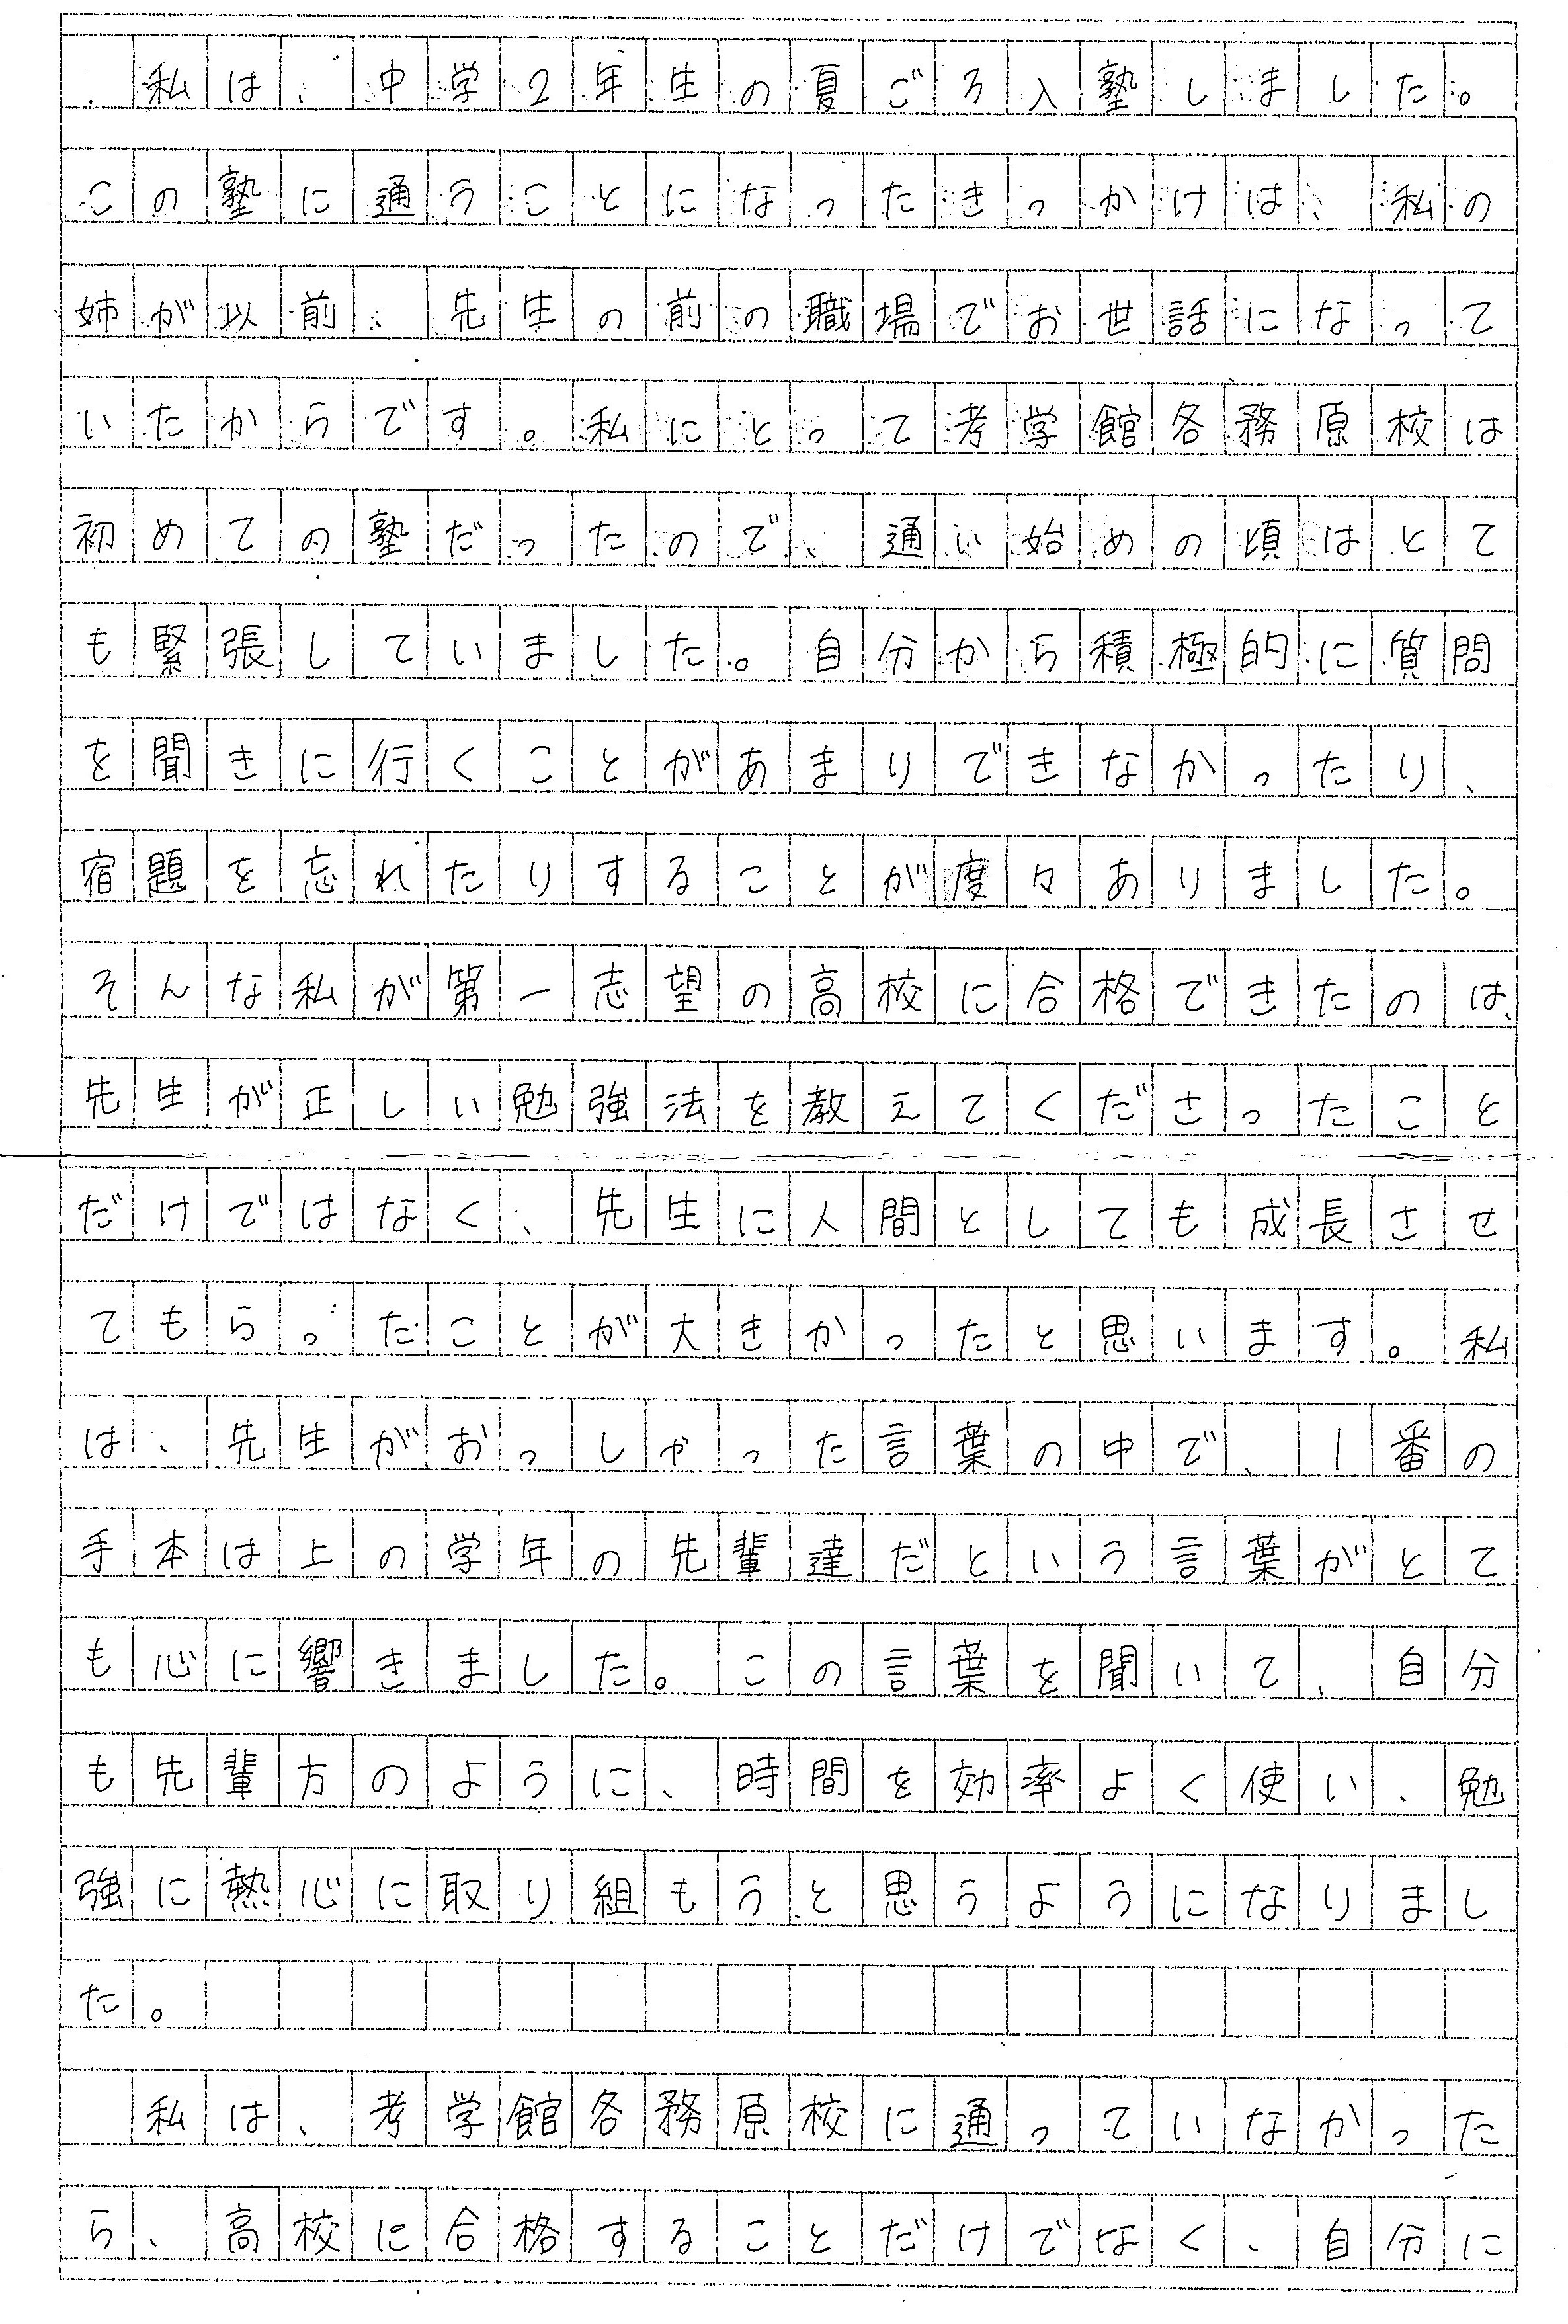 私は、中学2年生の夏ごろ入塾しました。
この塾に通うことになったきっかけは、私の
姉が以前、先生の前の職場でお世話になって
いたからです。私にとって考学館各務原校は
初めての塾だったので、通い始めの頃はとて
も緊張していました。自分から積極的に質問
を聞きに行くことがあまりできなかったり、
宿題を忘れたりすることが度々ありました。
そんな私が第一志望の高校に合格できたのは、
先生が正しい勉強法を教えてくださったこと
だけではなく、先生に人間としても成長させ
てもらったことが大きかったと思います。私
は、先生がおっしゃった言葉の中で、1番の
手本は上の学年の先輩達だという言葉がとて
も心に響きました。この言葉を聞いて、自分
も先輩方のように、時間を効率よく使い、勉
強に熱心に取り組もうと思うようになりまし
た。
私は、考学館各務原校に通っていなかった
ら、高校に合格することだけでなく、自分に